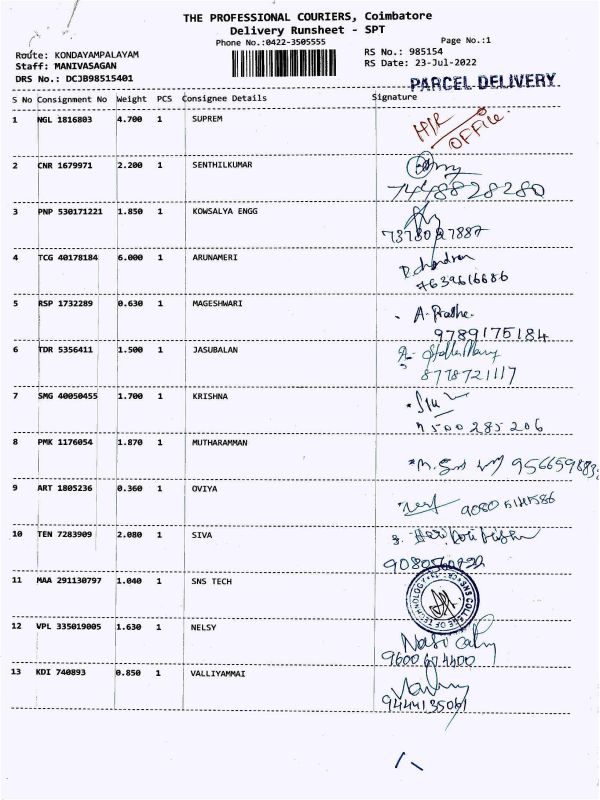 THE PROFESSIONAL COURIERS, Coimbatore
Delivery Runsheet - SPT
Phone No.:0422-3505555 Page No.:1
Route: KONDAYAMPALAYAM RS No.: 985154
Staff: MANIVASAGAN RS Date: 23-Jul-2022
DRS No.: DCJB98515401
PARCEL DELIVERY
S No Consignment No Weight PCS Consignee Details Signature
1 NGL 1816803 4.700 1 SUPREM H/R OFFICE
2 CNR 1679971 2.200 1 SENTHILKUMAR
7448828280
3 PNP 530171221 1.850 1 KOWSALYA ENGG
7378027887
4 TCG 40178184 6.000 1 ARUNAMERI R.chandran
7639616686
5 RSP 1732289 0.630 1 MAGESHWARI
9789175184
6 TDR 5356411 1.500 1 JASUBALAN
8778721117
7 SMG 40050455 1.700 1 KRISHNA
7500285206
8 PMK 1176054 1.870 1 MUTHARAMMAN
9 ART 1805236 0.360 1 OVIYA
10 TEN 7283909 2.080 1 SIVA
11 MAA 291130797 1.040 1 SNS TECH
SNS COLLEGE OF TECHNOLOGY
12 VPL 335019005 1.630 1 NELSY
13 KDI 740893 0.850 1 VALLIYAMMAI
9444135061